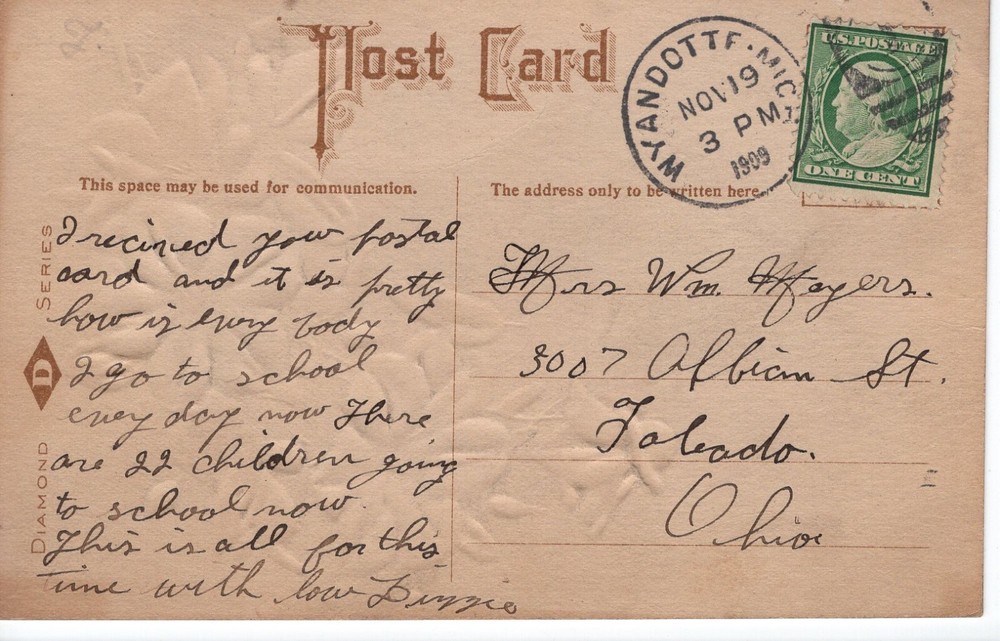 Post Card
WYANDOTTE. MICH.
NOV 19
3 PM
1909
U.S. POSTAGE
ONE CENT
This space may be used for communication.
The address only to be written here.
I recieved your postal
card and it is pretty
how is every body
I go to school
every day now There
are 22 children going
to school now.
This is all for this
time with love
Mrs Wm. Meyers.
3007 Albian St.
Toleado.
Ohio
DIAMOND D SERIES
22